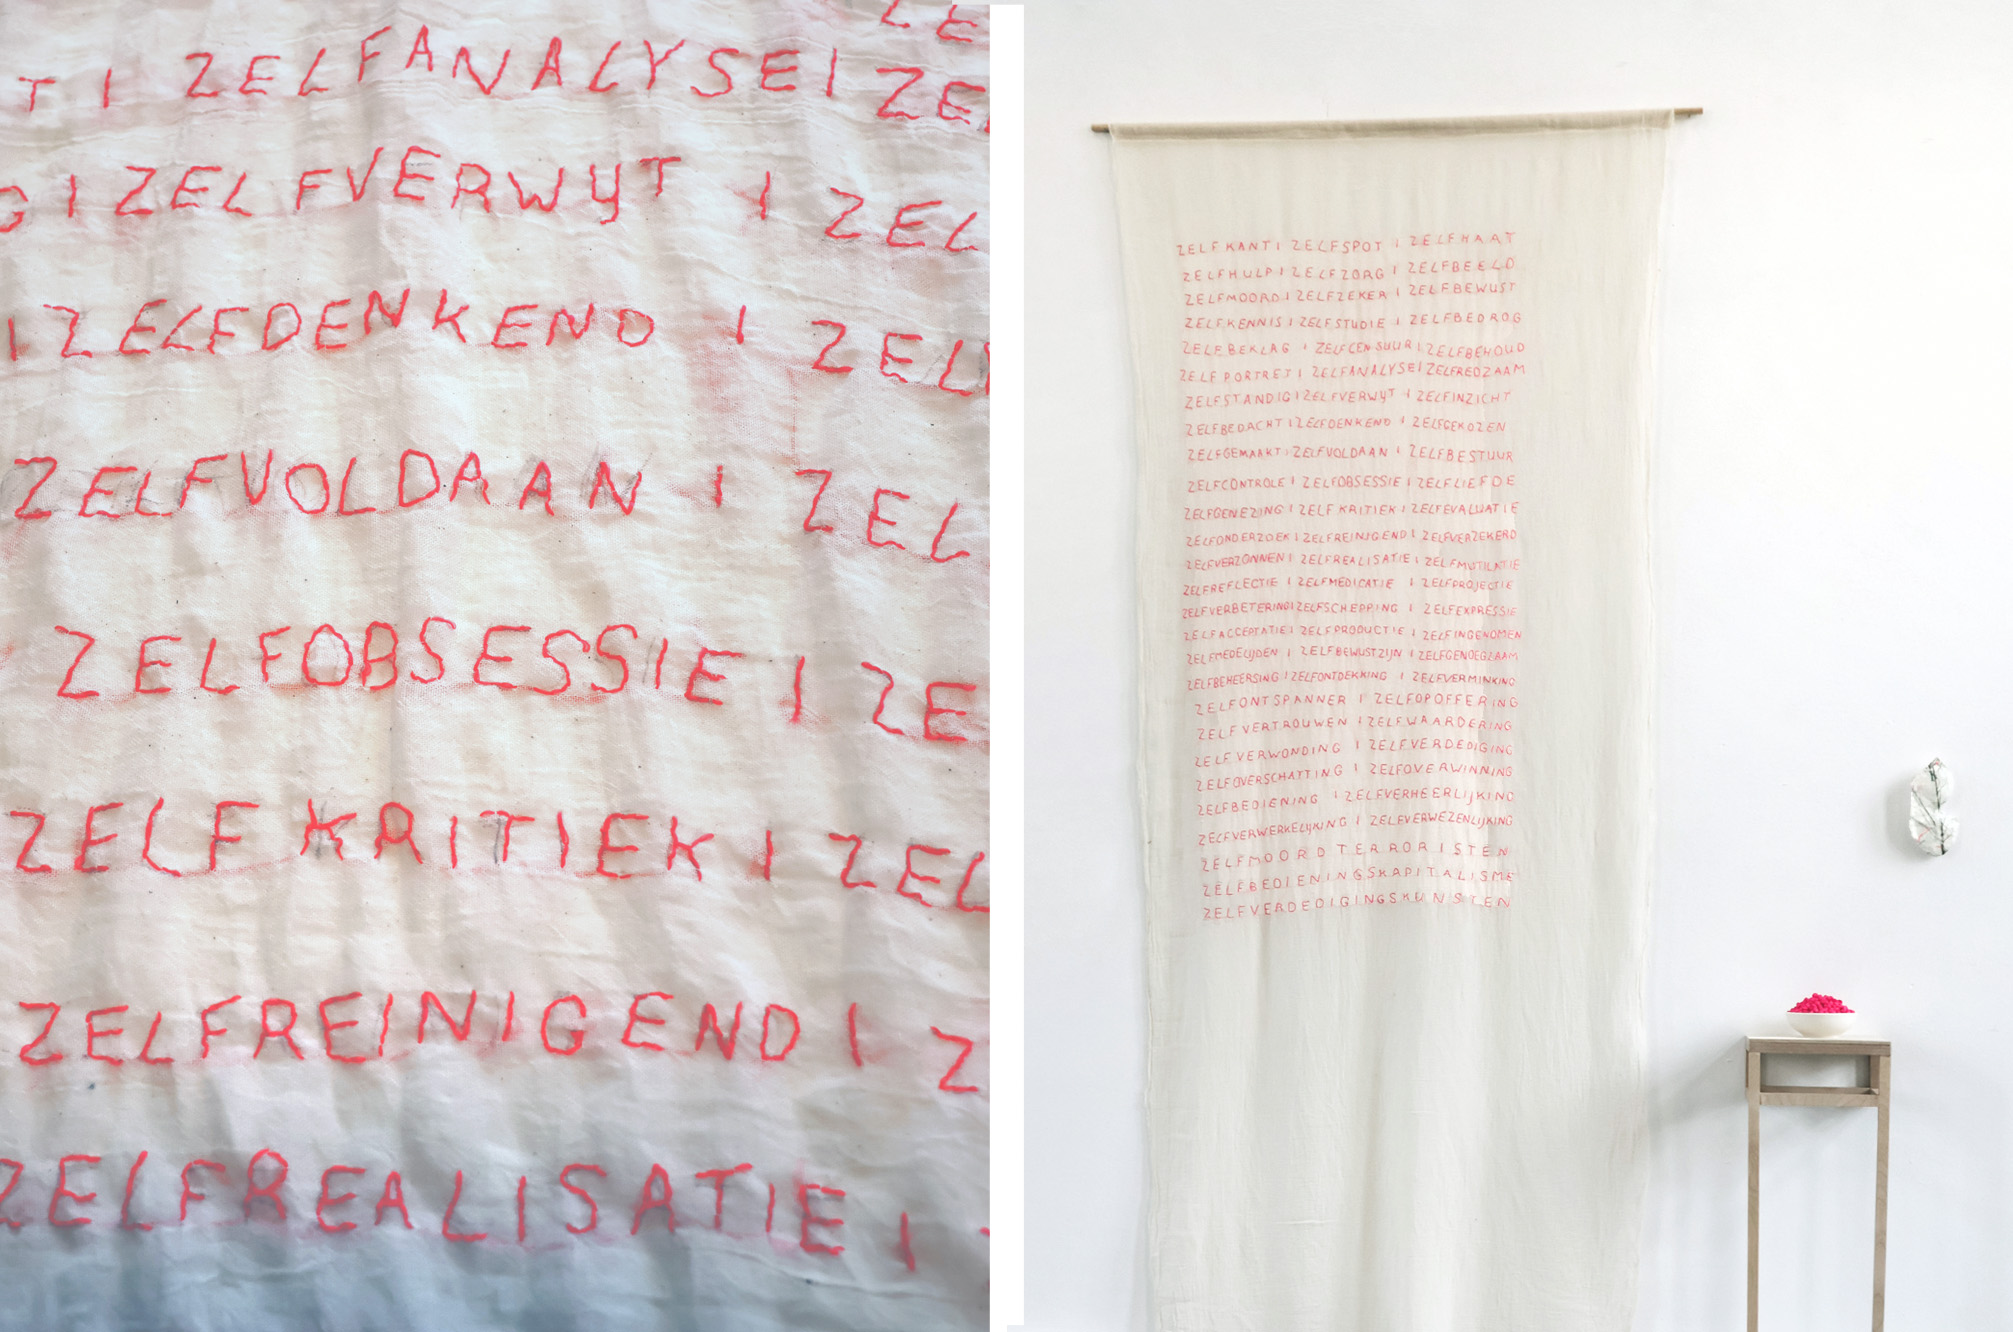 T I ZELFANALYSE I ZE
G I ZELFVERWYT I ZEL
I ZELFDENKEND I ZEL
ZELFVOLDAAN I ZEL
ZELFOBSESSIE I ZE
ZELFKRITIEK I ZEL
ZELFREINIGEND I Z
ZELFREALISATIE I
ZELFKANT I ZELFSPOT I ZELFHAAT
ZELFHULP I ZELFZORG I ZELFBEELD
ZELFMOORD I ZELFZEKER I ZELFBEWUST
ZELFKENNIS I ZELFSTUDIE I ZELFBEDROG
ZELFBEKLAG I ZELFCENSUUR I ZELFBEHOUD
ZELFPORTRET I ZELFANALYSE I ZELFREDZAAM
ZELFSTANDIG I ZELFVERWYT I ZELFINZICHT
ZELFBEDACHT I ZELFDENKEND I ZELFGEKOZEN
ZELFGEMAAKT I ZELFVOLDAAN I ZELFBESTUUR
ZELFCONTROLE I ZELFOBSESSIE I ZELFLIEFDE
ZELFGENEZING I ZELFKRITIEK I ZELFEVALUATIE
ZELFONDERZOEK I ZELFREINIGEND I ZELFVERZEKERD
ZELFVERZONNEN I ZELFREALISATIE I ZELFMUTILATIE
ZELFREFLECTIE I ZELFMEDICATIE I ZELFPROJECTIE
ZELFVERBETERING I ZELFSCHEPPING I ZELFEXPRESSIE
ZELFACCEPTATIE I ZELFPRODUCTIE I ZELFINGENOMEN
ZELFMEDELIJDEN I ZELFBEWUSTZIJN I ZELFGENOEGZAAM
ZELFBEHEERSING I ZELFONTDEKKING I ZELFVERMINKING
ZELFONTSPANNER I ZELFOPOFFERING
ZELFVERTROUWEN I ZELFWAARDERING
ZELFVERWONDING I ZELFVERDEDIGING
ZELFOVERSCHATTING I ZELFOVERWINNING
ZELFBEDIENING I ZELFVERHEERLIJKING
ZELFVERWERKELIJKING I ZELFVERWEZENLIJKING
ZELFMOORDTERRORISTEN
ZELFBEDIENINGSKAPITALISME
ZELFVERDEDIGINGSKUNSTEN